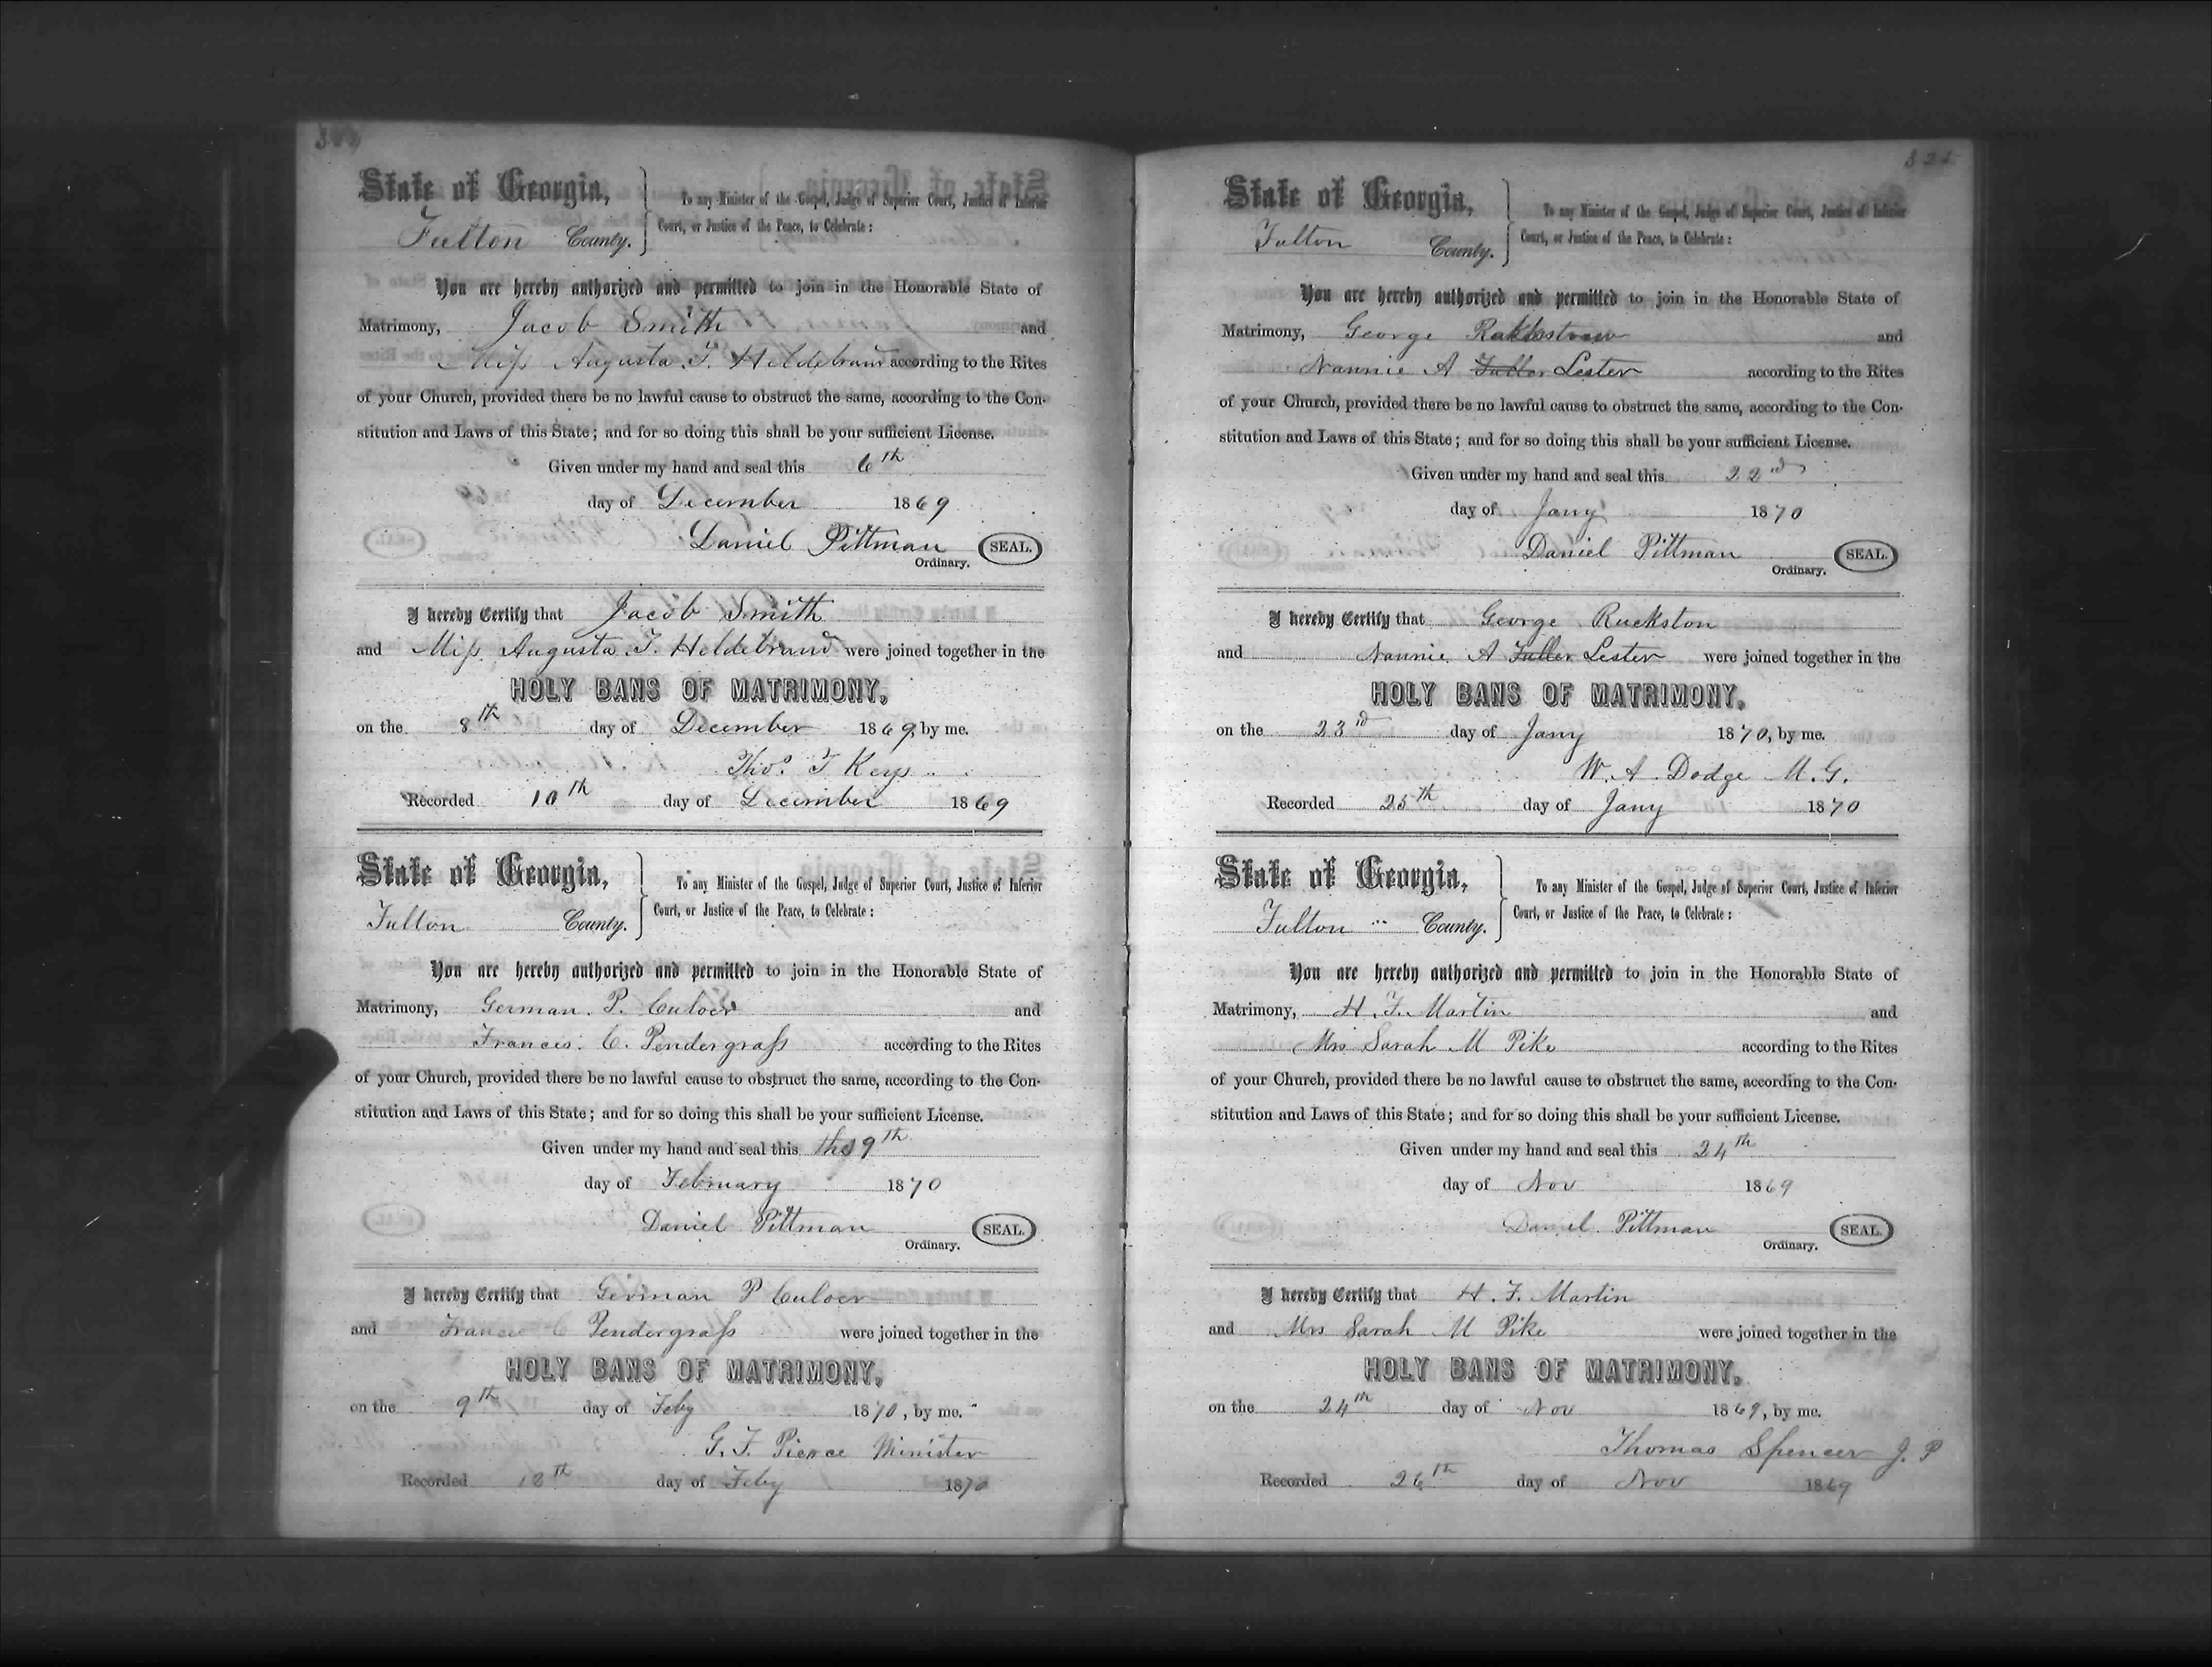 State of Georgia,
Fulton County.
To any Minister of the Gospel, Judge of Superior Court, Justice of Inferior
Court, or Justice of the Peace, to Celebrate:
You are hereby authorized and permitted to join in the Honorable State of
Matrimony, Jacob Smith and
Miss Augusta T. Heldebrand according to the Rites
of your Church, provided there be no lawful cause to obstruct the same, according to the Con-
stitution and Laws of this State; and for so doing this shall be your sufficient License.
Given under my hand and seal this 6th
day of December 1869
Daniel Pittman SEAL.
Ordinary.
I hereby Certify that Jacob Smith
and Miss Augusta T. Heldebrand were joined together in the
HOLY BANS OF MATRIMONY,
on the 8th day of December 1869, by me.
Thos. T Key
Recorded 10th day of December 1869
State of Georgia,
Fulton County.
To any Minister of the Gospel, Judge of Superior Court, Justice of Inferior
Court, or Justice of the Peace, to Celebrate:
You are hereby authorized and permitted to join in the Honorable State of
Matrimony, German. P. Culver and
Frances. C. Pendergrass according to the Rites
of your Church, provided there be no lawful cause to obstruct the same, according to the Con-
stitution and Laws of this State; and for so doing this shall be your sufficient License.
Given under my hand and seal this the 9th
day of February 1870
Daniel Pittman SEAL.
Ordinary.
I hereby Certify that German P Culver
and Frances C Pendergrass were joined together in the
HOLY BANS OF MATRIMONY,
on the 9th day of Feby 1870, by me.
G. F. Pierce Minister
Recorded 12th day of Feby 1870
325
State of Georgia,
Fulton County.
To any Minister of the Gospel, Judge of Superior Court, Justice of Inferior
Court, or Justice of the Peace, to Celebrate:
You are hereby authorized and permitted to join in the Honorable State of
Matrimony, George Rakestraw and
Nannie A Fuller Lester according to the Rites
of your Church, provided there be no lawful cause to obstruct the same, according to the Con-
stitution and Laws of this State; and for so doing this shall be your sufficient License.
Given under my hand and seal this 22nd
day of Jany 1870
Daniel Pittman SEAL.
Ordinary.
I hereby Certify that George Ruckston
and Nannie A Fuller Lester were joined together in the
HOLY BANS OF MATRIMONY,
on the 23rd day of Jany 1870, by me.
W. A. Dodge M. G.
Recorded 25th day of Jany 1870
State of Georgia,
Fulton County.
To any Minister of the Gospel, Judge of Superior Court, Justice of Inferior
Court, or Justice of the Peace, to Celebrate:
You are hereby authorized and permitted to join in the Honorable State of
Matrimony, H. F. Martin and
Mrs Sarah M Pike according to the Rites
of your Church, provided there be no lawful cause to obstruct the same, according to the Con-
stitution and Laws of this State; and for so doing this shall be your sufficient License.
Given under my hand and seal this 24th
day of Nov 1869
Daniel Pittman SEAL.
Ordinary.
I hereby Certify that H. F. Martin
and Mrs Sarah M Pike were joined together in the
HOLY BANS OF MATRIMONY,
on the 24th day of Nov 1869, by me.
Thomas Spencer J. P
Recorded 26th day of Nov 1869